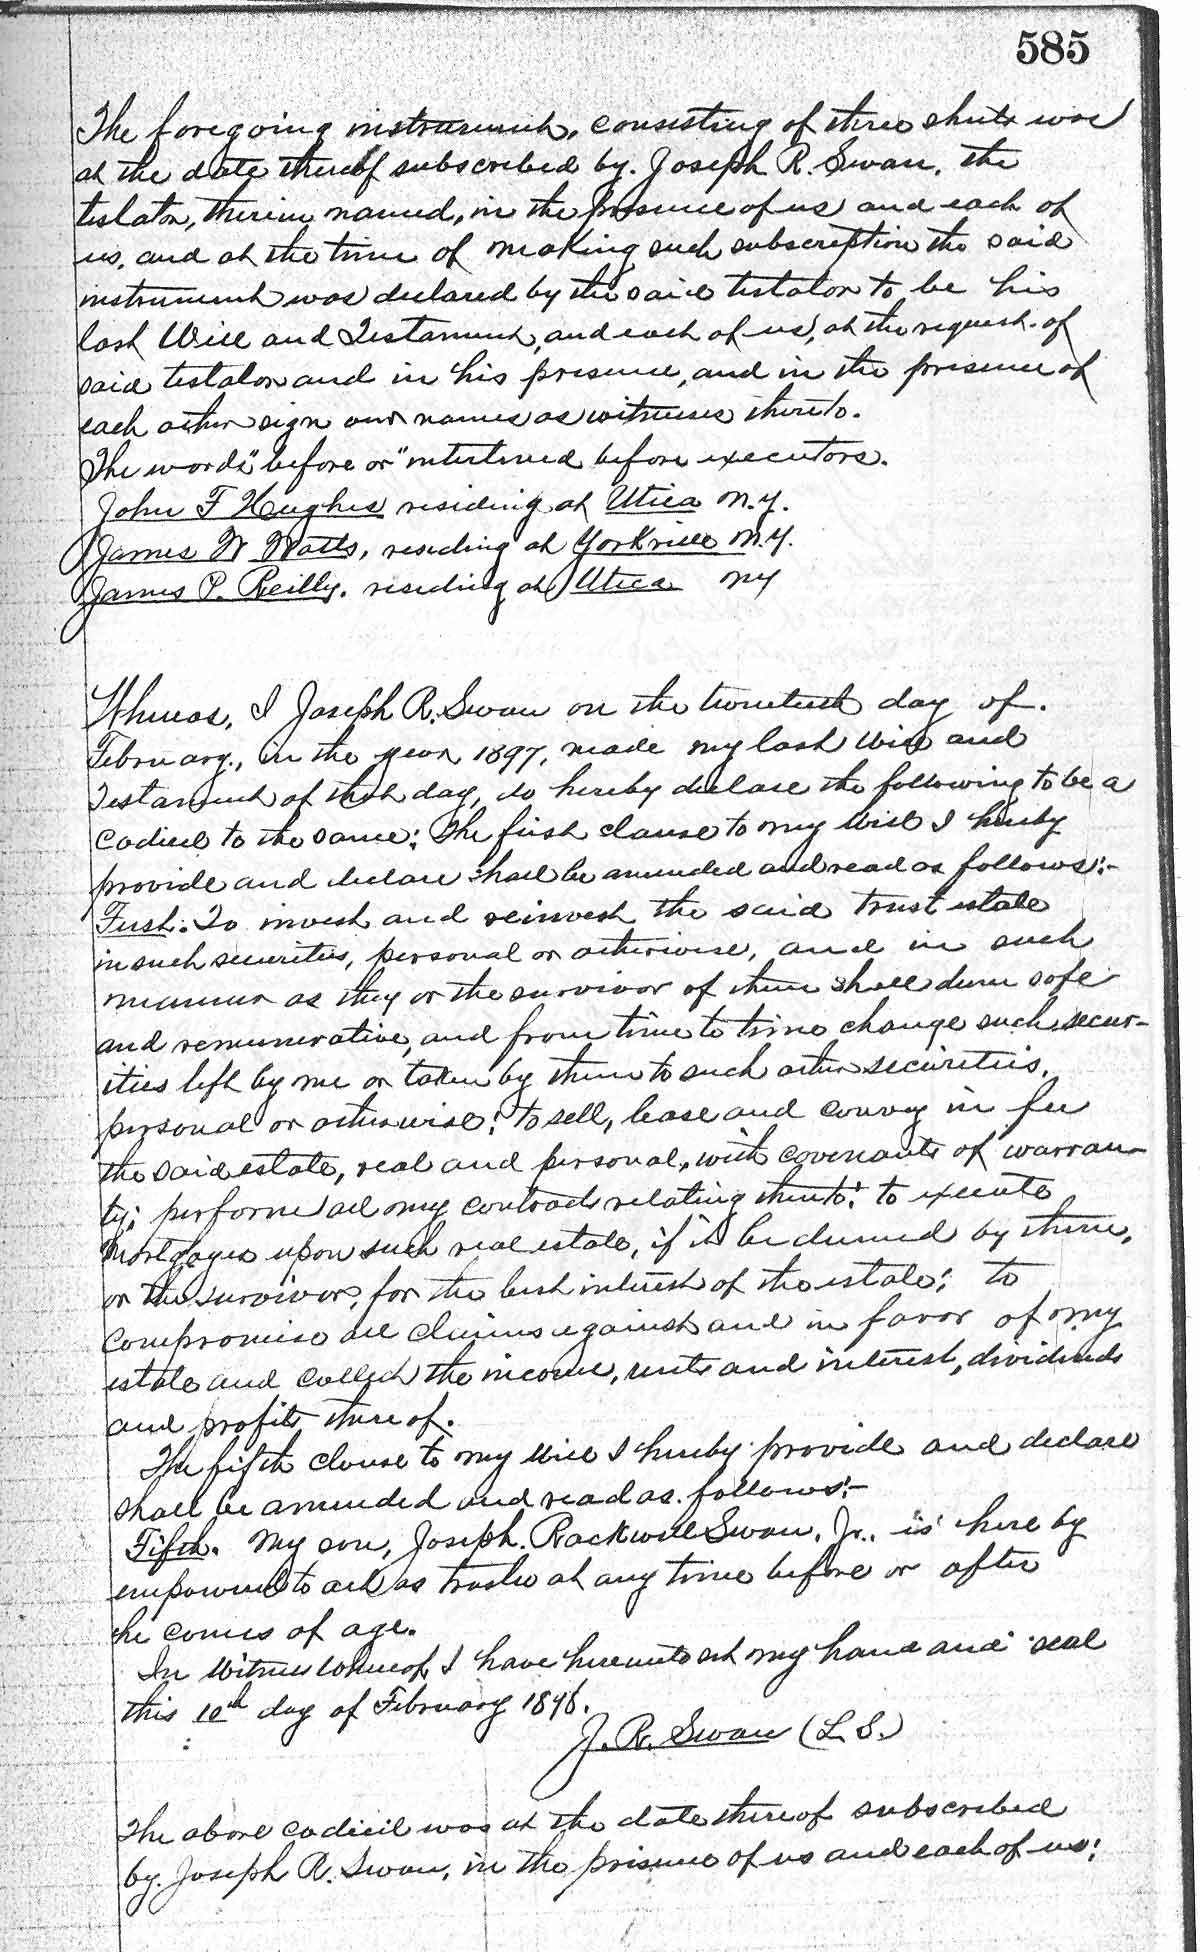 585
The foregoing instrument, consisting of three sheets was
at the date thereof subscribed by Joseph R. Swan, the
testator, therein named, in the presence of us and each of
us, and at the time of making such subscription the said
instrument was declared by the said testator to be his
last Will and Testament, and each of us, at the request of
said testator and in his presence, and in the presence of
each other sign our names as witnesses thereto.
The words "before or" interlined before executors.
John F Hughes residing at Utica N.Y.
James W Watts, residing at Yorkville N.Y.
James P. Reilly. residing at Utica NY
Whereas, I Joseph R. Swan on the twentieth day of
February, in the year 1897, made my last Will and
Testament of that day, do hereby declare the following to be a
Codicil to the same: The first clause to my Will I hereby
provide and declare shall be amended and read as follows:-
First: To invest and reinvest the said trust estate
in such securities, personal or otherwise, and in such
manner as they or the survivor of them shall deem safe
and remunerative, and from time to time change such secur-
ities left by me or taken by them to such other securities,
personal or otherwise; to sell, lease and convey in fee
the said estate, real and personal, with covenants of warran-
ty; perform all my contracts relating thereto; to execute
Mortgages upon such real estate, if it be deemed by them,
or the survivor, for the best interest of the estate; to
compromise all claims against and in favor of my
estate and collect the income, rents and interest, dividends
and profits thereof.
The fifth clause to my Will I hereby provide and declare
shall be amended and read as follows:-
Fifth. My son, Joseph Rockwell Swan, Jr., is hereby
empowered to act as trustee at any time before or after
he comes of age.
In Witness Whereof, I have hereunto set my hand and seal
this 10th day of February 1898.
J. R. Swan (L. S.)
The above codicil was at the date thereof subscribed
by Joseph R. Swan, in the presence of us and each of us;